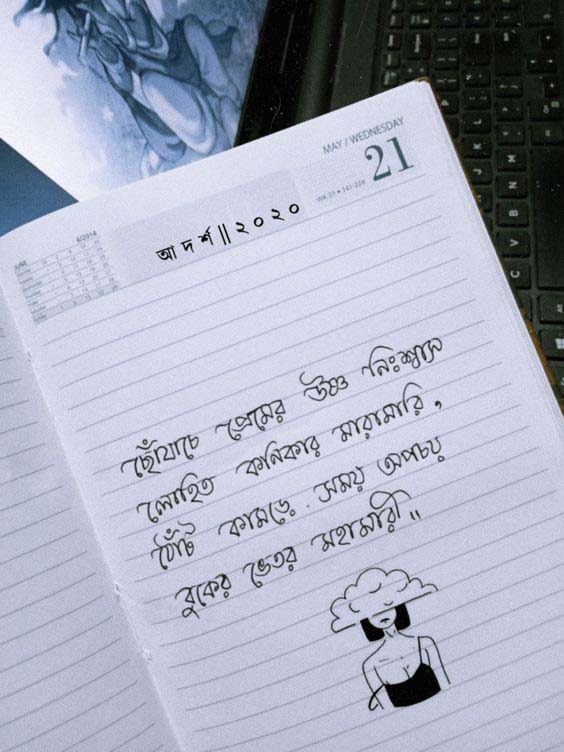 MAY / WEDNESDAY
21
WK 21 • 141-224
JUNE 6/2014
আদর্শ || ২০২০
ছোঁয়াচে প্রেমের উষ্ণ নিঃশ্বাস
লোহিত কনিকার মারামারি,
ঠোঁট কামড়ে. সময় অপচয়
বুকের ভেতর মহামারী॥